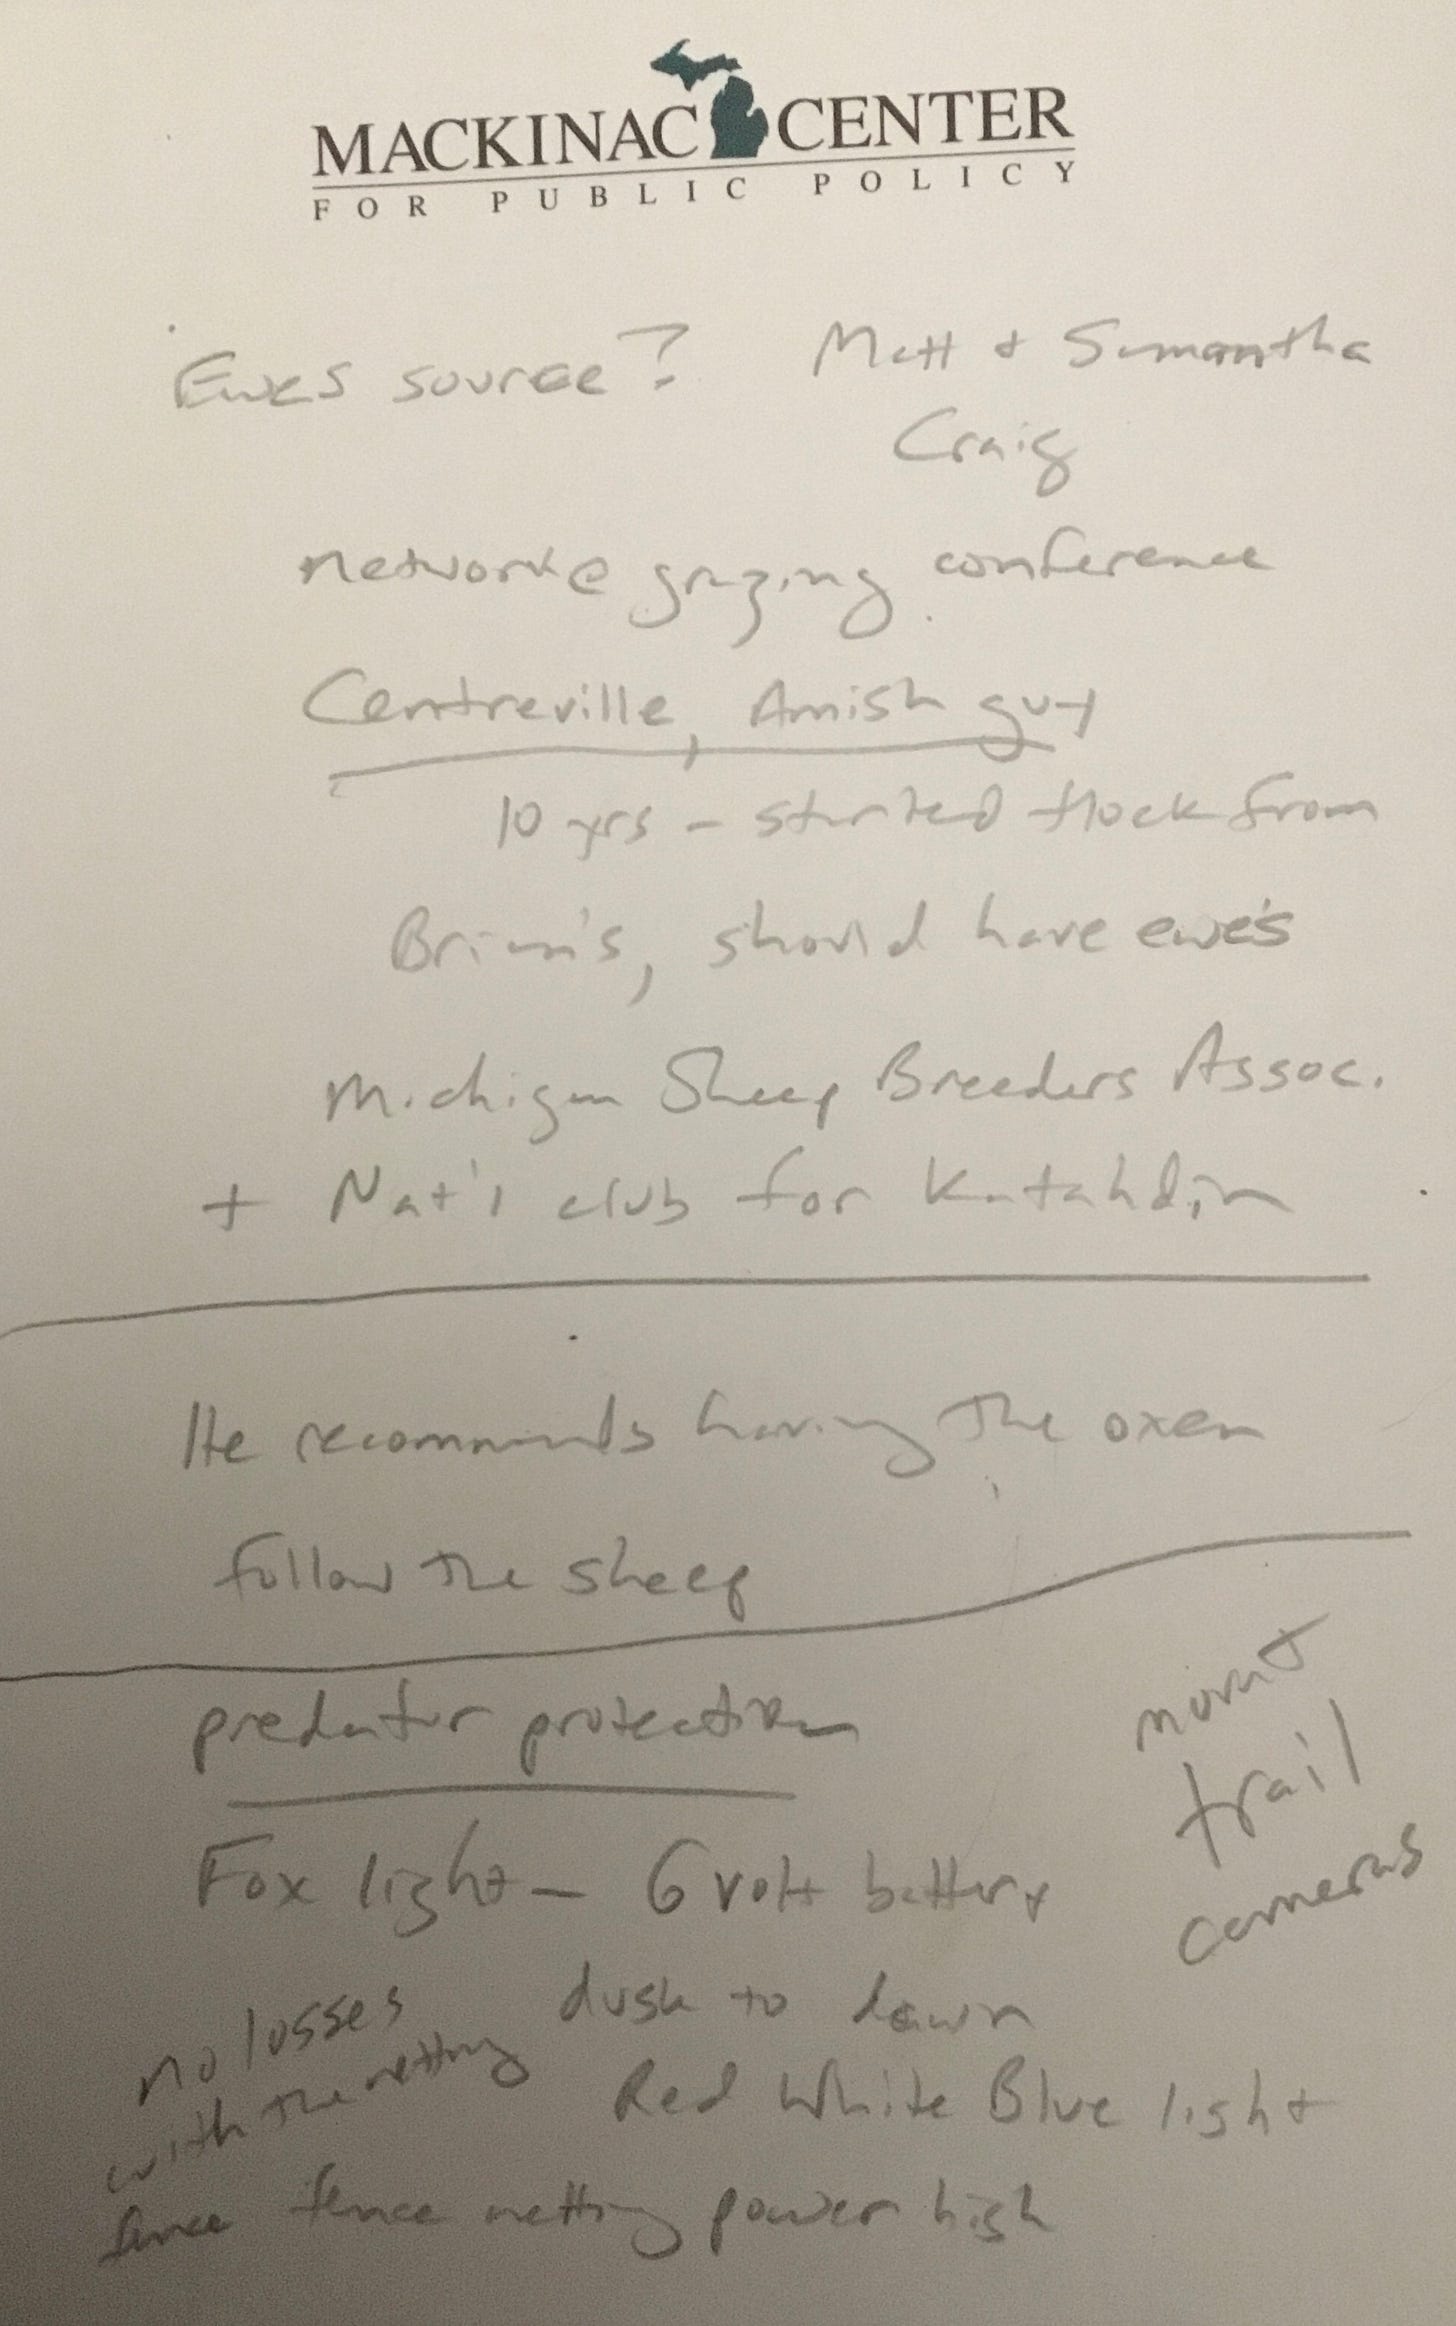 MACKINAC CENTER
FOR PUBLIC POLICY
Ewes source? Matt + Samantha
Craig
network@ grazing conference
Centreville, Amish guy
10 yrs - started flock from
Brian's, should have ewe's
Michigan Sheep Breeders Assoc.
+ Nat'l club for Katahdin
He recommends having the oxen
follow the sheep
predator protection
mount
trail
cameras
Fox light - 6 volt battery
dusk to dawn
Red White Blue light
fence netting power high
no losses
with the netting
fence